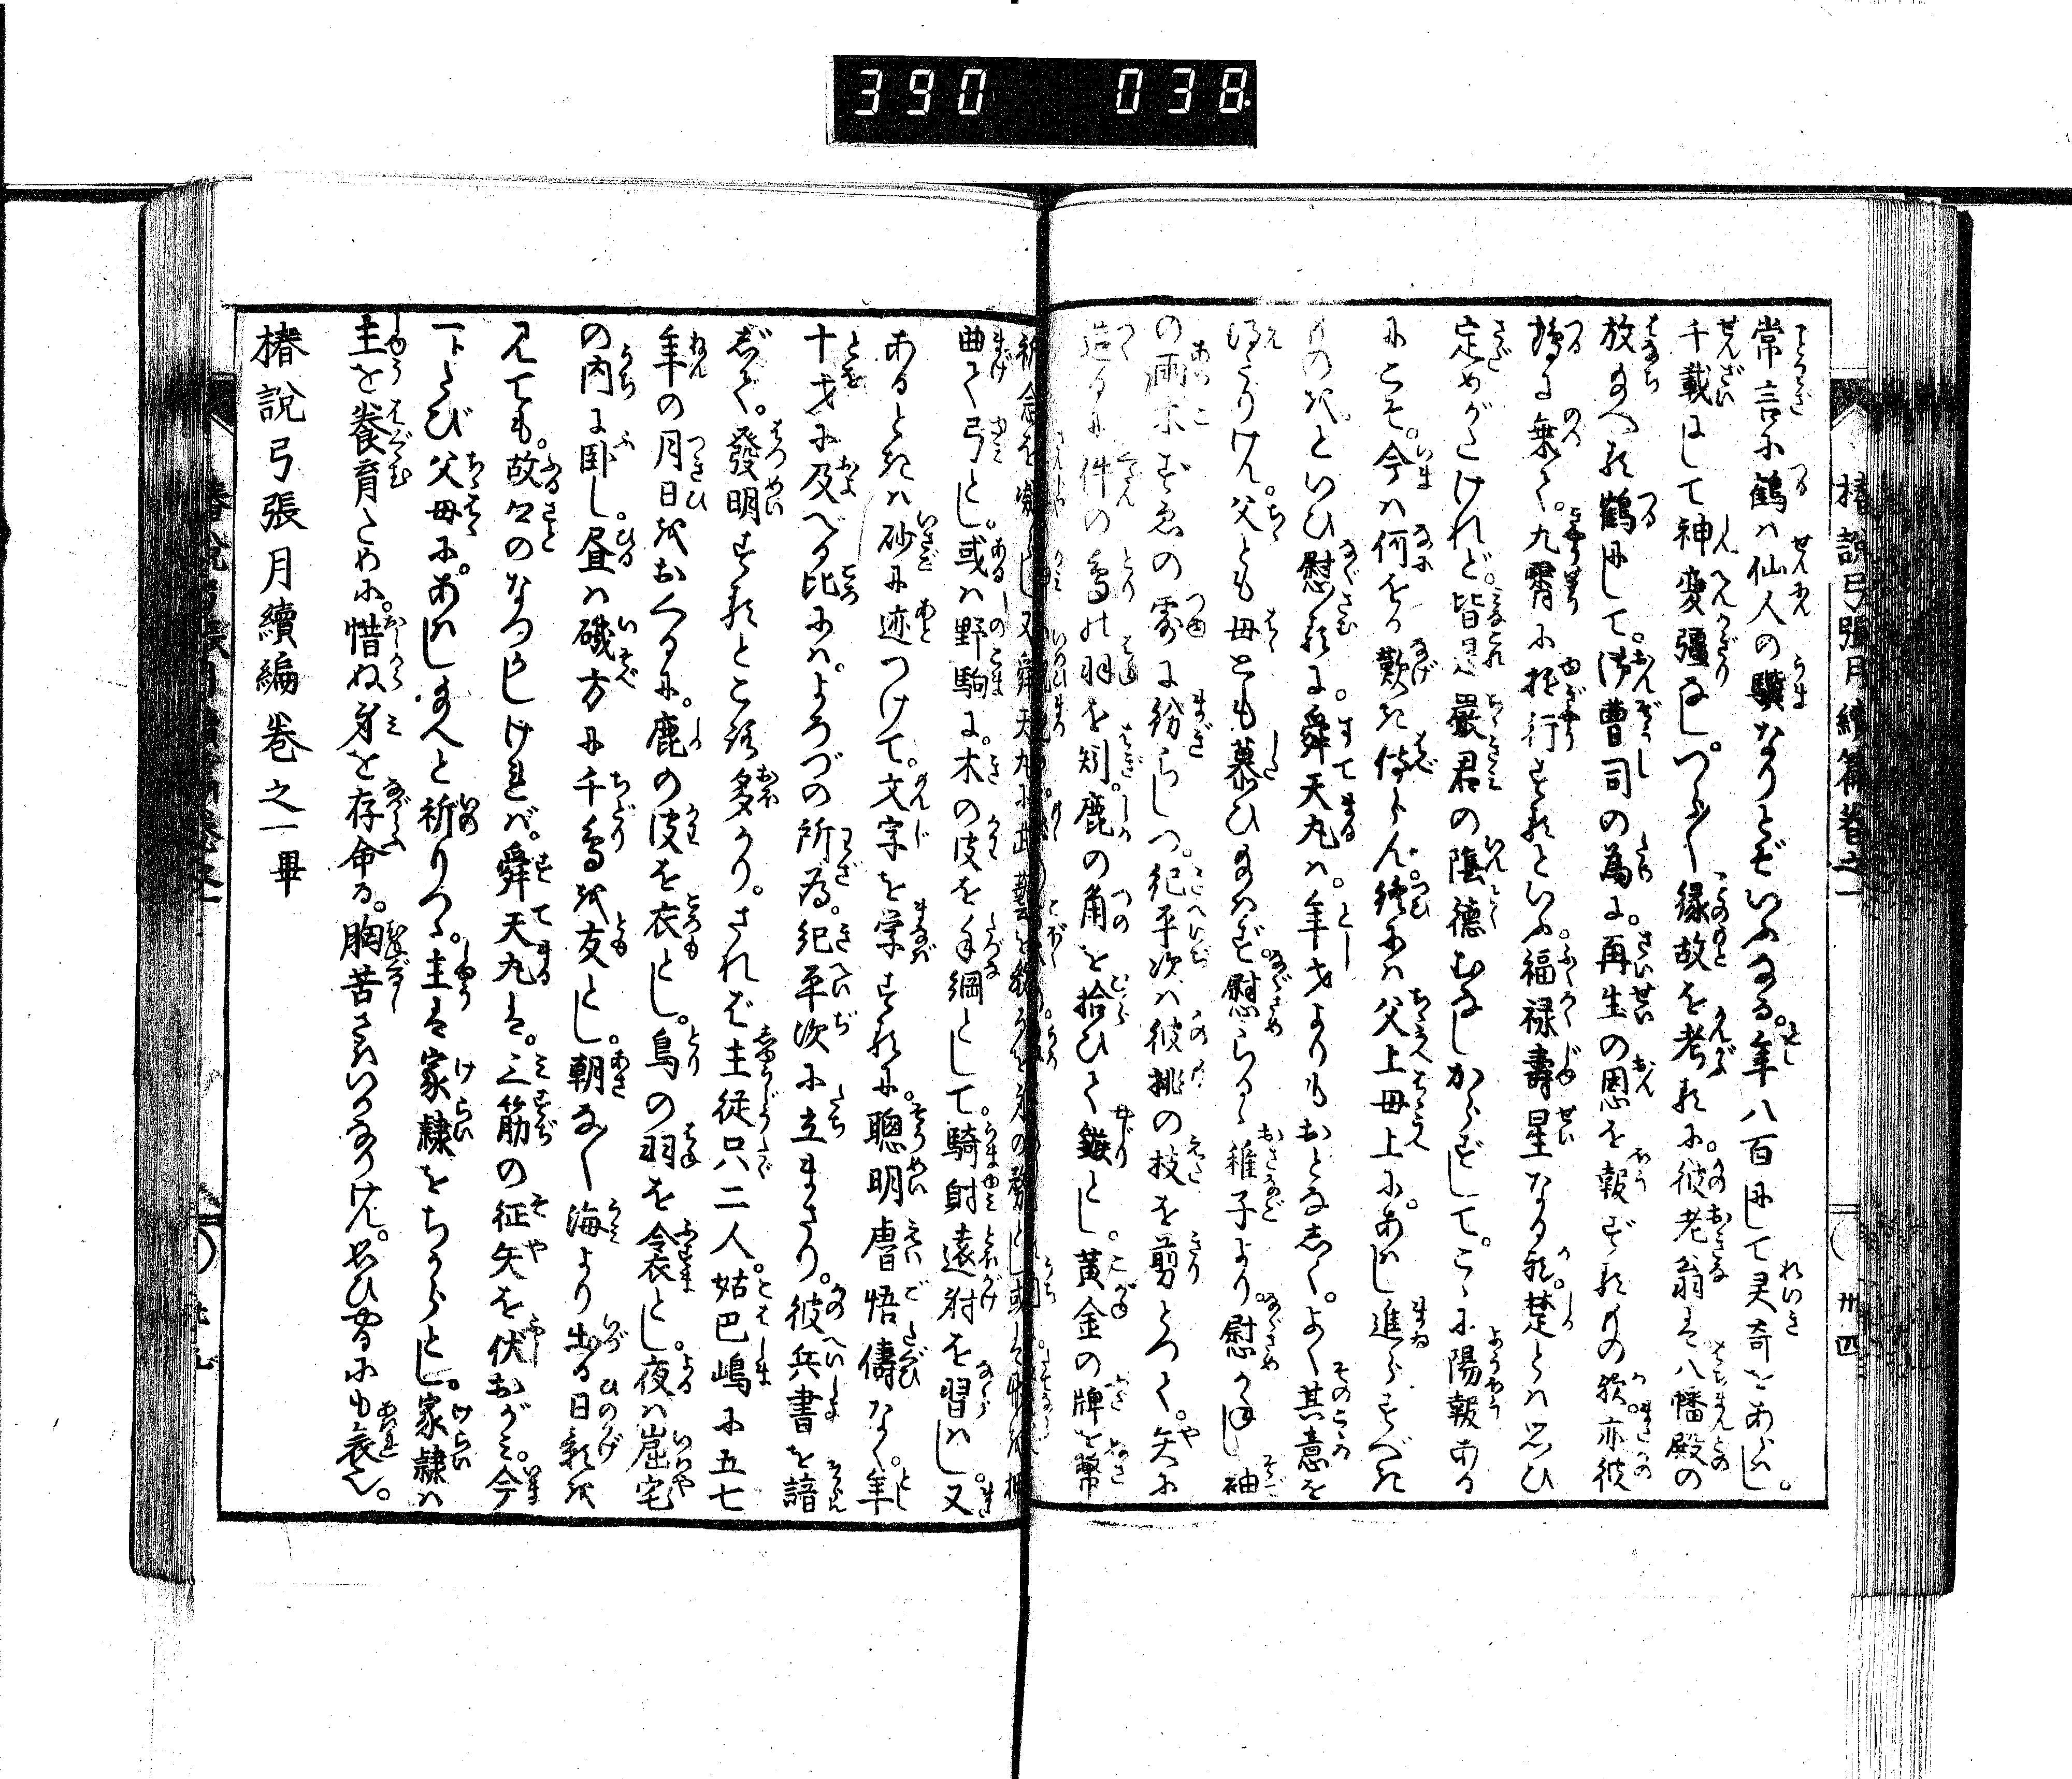 390 038
椿説弓張月續篇巻之一
卅四
常言に鶴は仙人の驥なりとぞいふなる。年八百にして灵奇をあらはし。
千載にして神変彊なし。つら〳〵縁故を考るに。彼老翁は八幡殿の
放給へる鶴にして。御曹司の為に。再生の恩を報ずるもの歟。亦彼
鶴に乗て。九霄に遊行するといふ。福禄壽星なる歟。楚とは思ひ
定めがたけれど。皆是嚴君の陰徳むなしからずして。こゝに陽報ある
にこそ。今は何をか歎き侍らん。終には父上母上に。あはし進らすべき
ものを。といひ慰るに。舜天丸は。年才よりもおとなしく。よく其意を
得たりけん。父とも母とも慕ひ給はず。慰らるゝ稚子より。慰かねし袖
の雨。木ずゑの露に紛らしつ。紀平次は彼桃の枝を剪とりて。矢に
造るに件の鳥の羽を矧。鹿の角を拾ひて鏃とし。黄金の牌を幣
曲て弓とし。或は野駒に。木の皮を手綱として。騎射遠射を習はし。又
あるときは砂に迹つけて。文字を学するに。聰明睿悟儔なく。年
十才に及べる比には。よろづの所為。紀平次に立まさり。彼兵書を諳
じて。發明するところ多かり。されば主従只二人。姑巴嶋に五七
年の月日をおくるに。鹿の皮を衣とし。鳥の羽を衾とし。夜は崫宅
の内に臥し。昼は磯方に千鳥を友とし。朝な〳〵海より出る日影を
見ても。故郷のなつかしければ。舜天丸は。三筋の征矢を伏おがみ。今
一トたび父母に。あはし給へと祈りつゝ。主は家隷をちからとし。家隷は
主を養育ために。惜ぬ身を存命る。胸苦さはいかなりけん。思ひやるにも哀也。
椿説弓張月續編巻之一畢